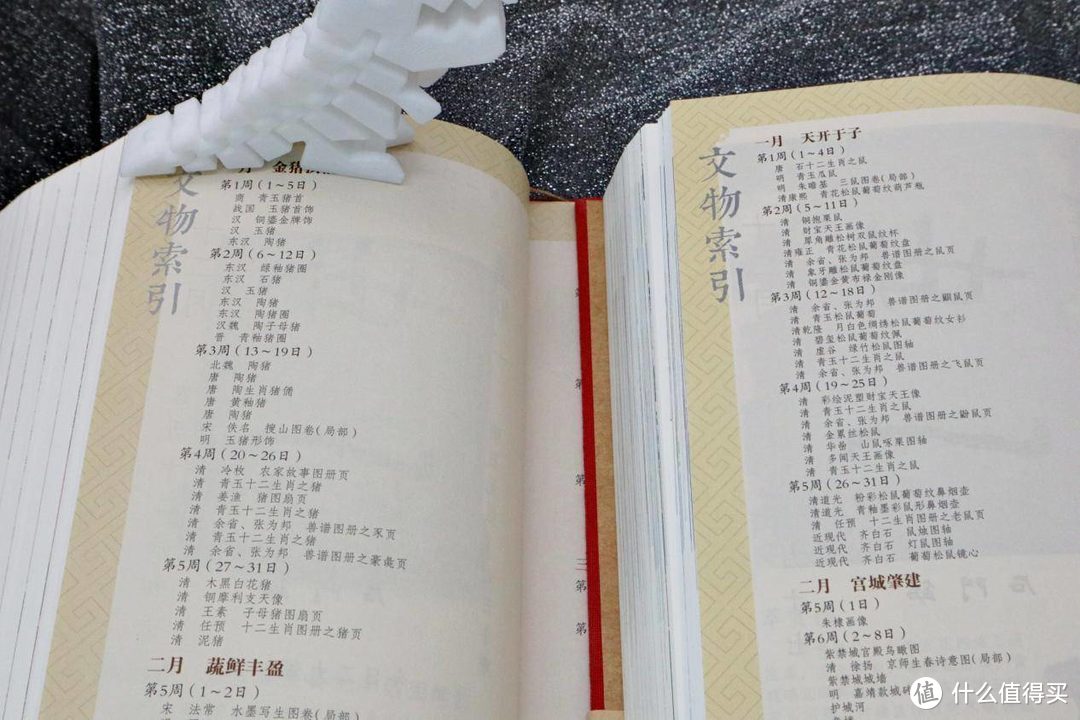 文物索引
金猪
第1周(1~5日)
商 青玉猪首
战国 玉猪首饰
汉 铜鎏金牌饰
汉 玉猪
东汉 陶猪
第2周(6~12日)
东汉 绿釉猪圈
东汉 石猪
汉 玉猪
东汉 陶猪
东汉 陶猪圈
汉魏 陶子母猪
晋 青釉猪圈
第3周(13~19日)
北魏 陶猪
唐 陶猪
唐 陶生肖猪俑
唐 黄釉猪
唐 陶猪
宋 佚名 搜山图卷(局部)
明 玉猪形饰
第4周(20~26日)
清 冷枚 农家故事图册页
清 青玉十二生肖之猪
清 姜渔 猪图扇页
清 余省、张为邦 兽谱图册之豕页
清 青玉十二生肖之猪
清 余省、张为邦 兽谱图册之豪彘页
第5周(27~31日)
清 木黑白花猪
清 铜摩利支天像
清 王素 子母猪图扇页
清 任预 十二生肖图册之猪页
清 泥猪
二月 蔬鲜丰盈
第5周(1~2日)
宋 法常 水墨写生图卷(局部)
文物索引
一月 天开于子
第1周(1~4日)
唐 石十二生肖之鼠
明 青玉瓜鼠
明 朱瞻基 三鼠图卷(局部)
清康熙 青花松鼠葡萄纹葫芦瓶
第2周(5~11日)
清 铜抱栗鼠
清 财宝天王画像
清 犀角雕松树双鼠纹杯
清雍正 青花松鼠葡萄纹盘
清 余省、张为邦 兽谱图册之鼠页
清 象牙雕松鼠葡萄纹盘
清 铜鎏金黄布禄金刚像
第3周(12~18日)
清 余省、张为邦 兽谱图册之鼳鼠页
清 青玉松鼠葡萄
清乾隆 月白色绸绣松鼠葡萄纹女衫
清 碧玺松鼠葡萄纹佩
清 虚谷 绿竹松鼠图轴
清 青玉十二生肖之鼠
清 余省、张为邦 兽谱图册之飞鼠页
第4周(19~25日)
清 彩绘泥塑财宝天王像
清 青玉十二生肖之鼠
清 余省、张为邦 兽谱图册之鼢鼠页
清 金累丝松鼠
清 华嵒 山鼠啄果图轴
清 多闻天王画像
清 青玉十二生肖之鼠
第5周(26~31日)
清道光 粉彩松鼠葡萄纹鼻烟壶
清道光 青釉墨彩鼠形鼻烟壶
清 任预 十二生肖图册之老鼠页
近现代 齐白石 鼠烛图轴
近现代 齐白石 灯鼠图轴
近现代 齐白石 葡萄松鼠镜心
二月 宫城肇建
第5周(1日)
朱棣画像
第6周(2~8日)
紫禁城宫殿鸟瞰图
清 徐扬 京师生春诗意图(局部)
紫禁城城墙
明 嘉靖款城砖
护城河
值 什么值得买